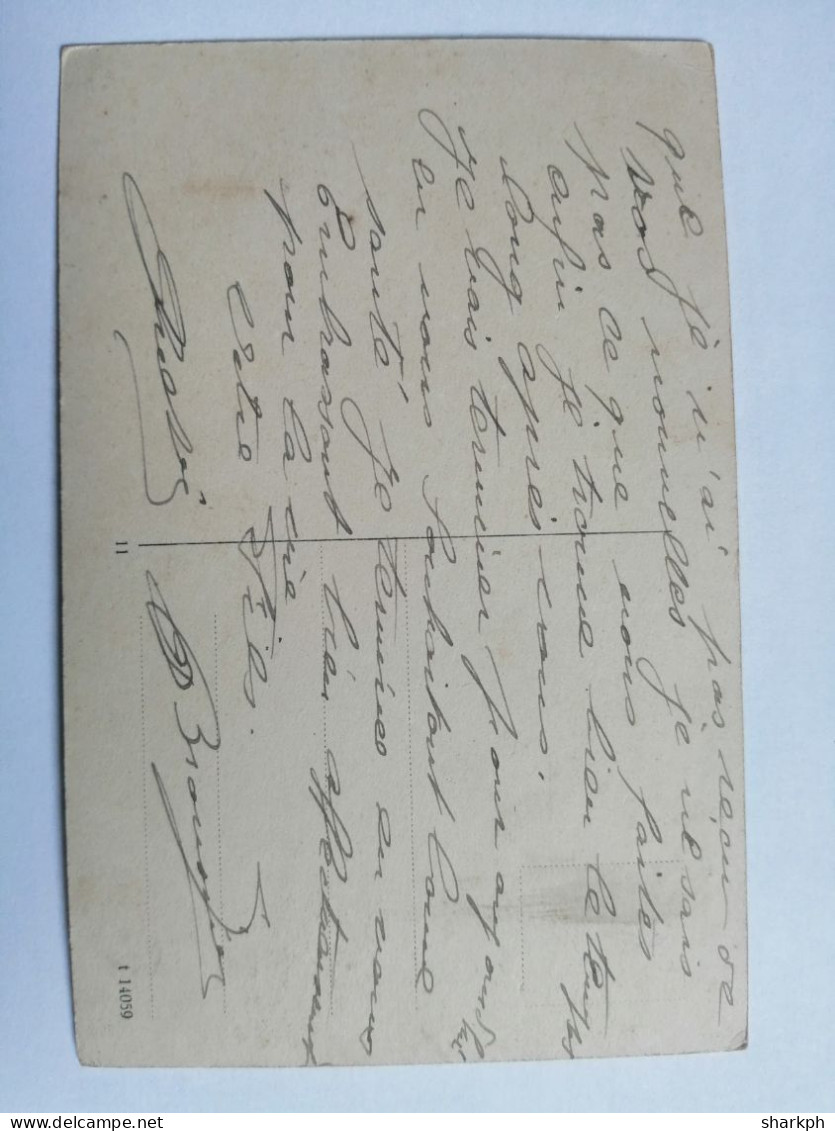 que je n'ai pas reçu de
vos nouvelles je ne sais
pas ce que vous faites
enfin je trouve bien le temps
long après vous.
Je vais terminer pour aujourd
hui
en vous souhaitant bonne
santé Je termine en vous
Embrassant bien affectueusement
pour la vie
votre Fils.
11
t 14059
sharkph
delcampe.net